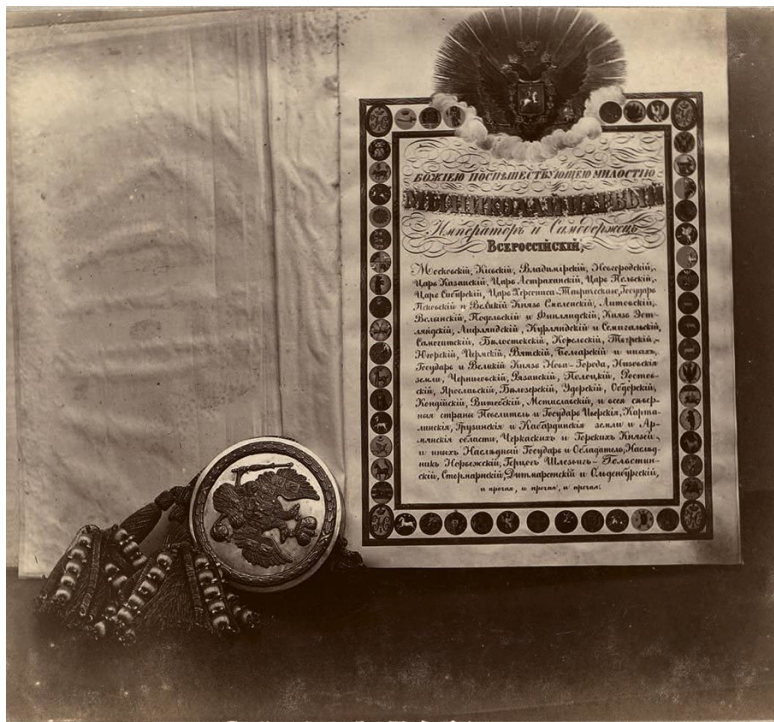 БОЖІЕЮ ПОСПѢШЕСТВУЮЩЕЮ МИЛОСТІЮ
МЫ НИКОЛАЙ ПЕРВЫЙ
Императоръ и Самодержецъ
ВСЕРОССІЙСКІЙ,
Московскій, Кіевскій, Владимірскій, Новгородскій,
Царь Казанскій, Царь Астраханскій, Царь Польскій,
Царь Сибирскій, Царь Херсониса-Таврическаго, Государь
Псковскій и Великій Князь Смоленскій, Литовскій,
Волынскій, Подольскій и Финляндскій, Князь Эст-
ляндскій, Лифляндскій, Курляндскій и Семигальскій,
Самогитскій, Бѣлостокскій, Корельскій, Тверскій,
Югорскій, Пермскій, Вятскій, Болгарскій и иныхъ,
Государь и Великій Князь Нова-Города, Низовскія
земли, Черниговскій, Рязанскій, Полоцкій, Ростов-
скій, Ярославскій, Бѣлозерскій, Удорскій, Обдорскій,
Кондійскій, Витебскій, Мстиславскій, и всея сѣвер-
ныя страны Повелитель и Государь Иверскія, Карта-
линскія, Грузинскія и Кабардинскія земли и Ар-
мянскія области, Черкаскихъ и Горскихъ Князей
и иныхъ Наслѣдный Государь и Обладатель, Наслѣд-
никъ Норвежскій, Герцогъ Шлезвигъ-Голстин-
скій, Стормарнскій, Дитмарсенскій и Ольденбургскій,
и прочая, и прочая, и прочая.